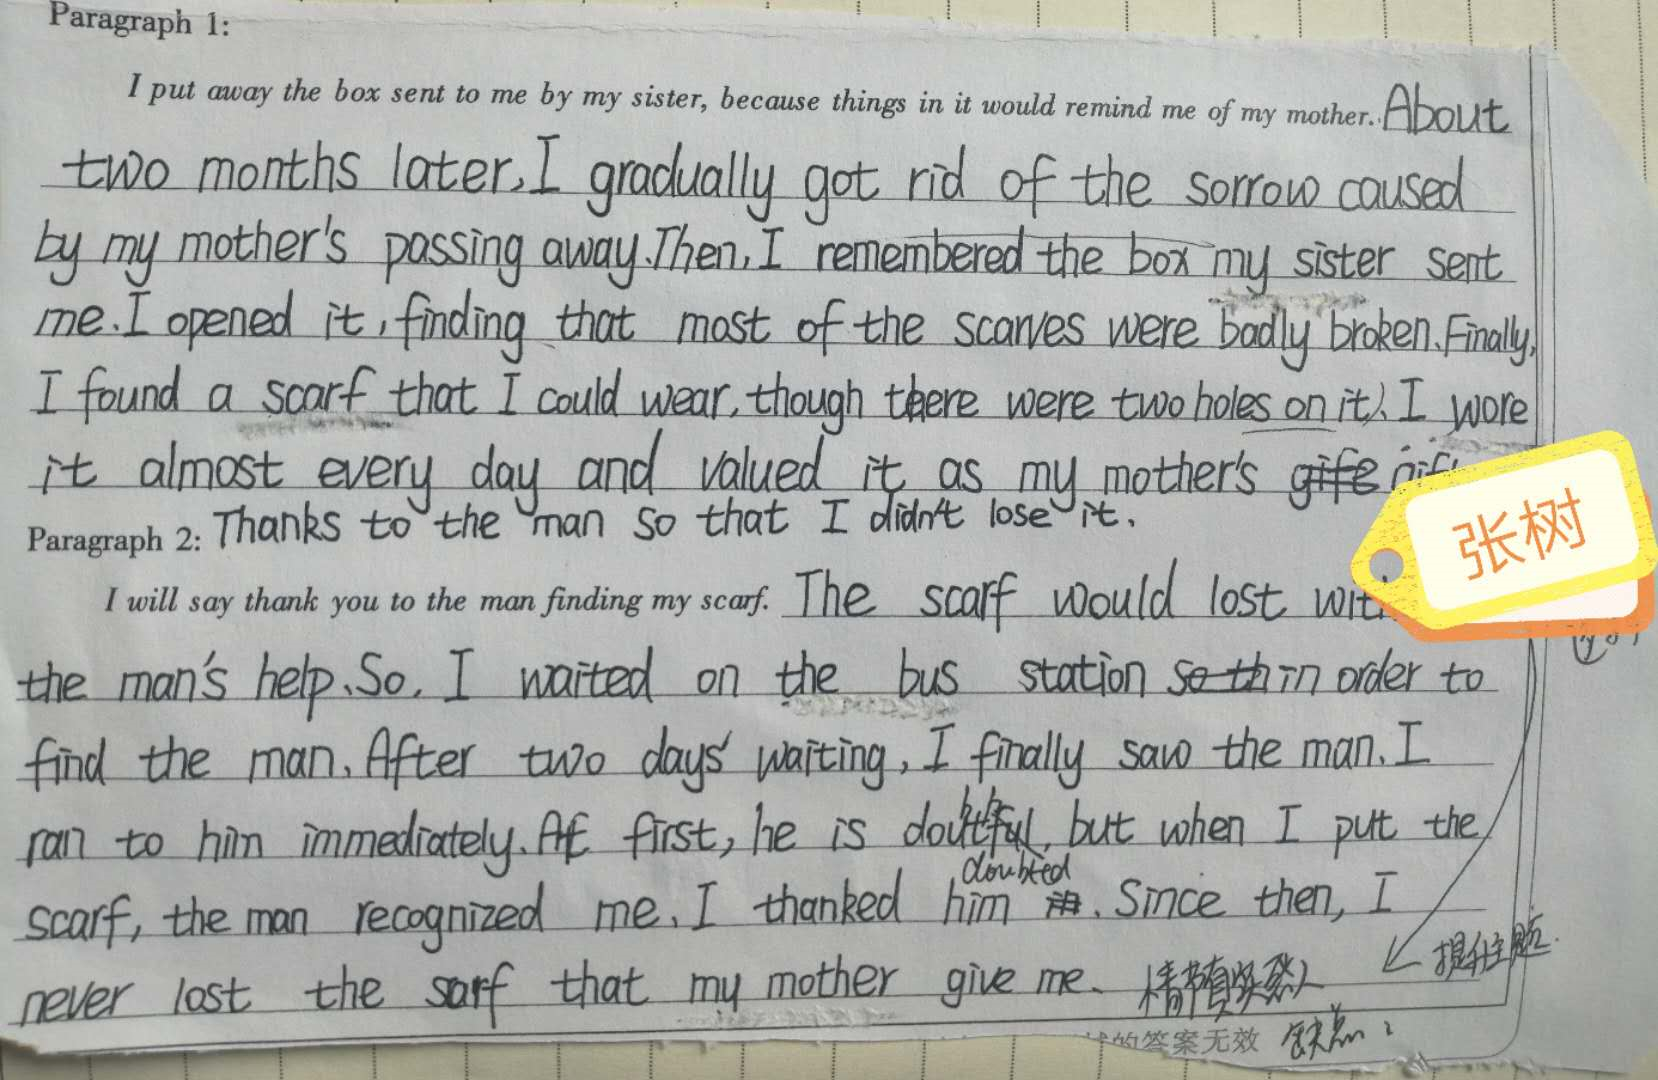 Paragraph 1:
I put away the box sent to me by my sister, because things in it would remind me of my mother. About
two months later, I gradually got rid of the sorrow caused
by my mother's passing away. Then, I remembered the box my sister sent
me. I opened it, finding that most of the scarves were badly broken. Finally,
I found a scarf that I could wear, though there were two holes on it). I wore
it almost every day and valued it as my mother's gife
Paragraph 2: Thanks to the man so that I didn't lose it.
张树
I will say thank you to the man finding my scarf. The scarf would lost
the man's help. So, I waited on the bus station so th in order to
find the man. After two days' waiting, I finally saw the man. I
ran to him immediately. At first, he is but when I put the
doubted
scarf, the man recognized me. I thanked him . Since then, I
never lost the sarf that my mother give me. 情节有
提升主题.
的答案无效